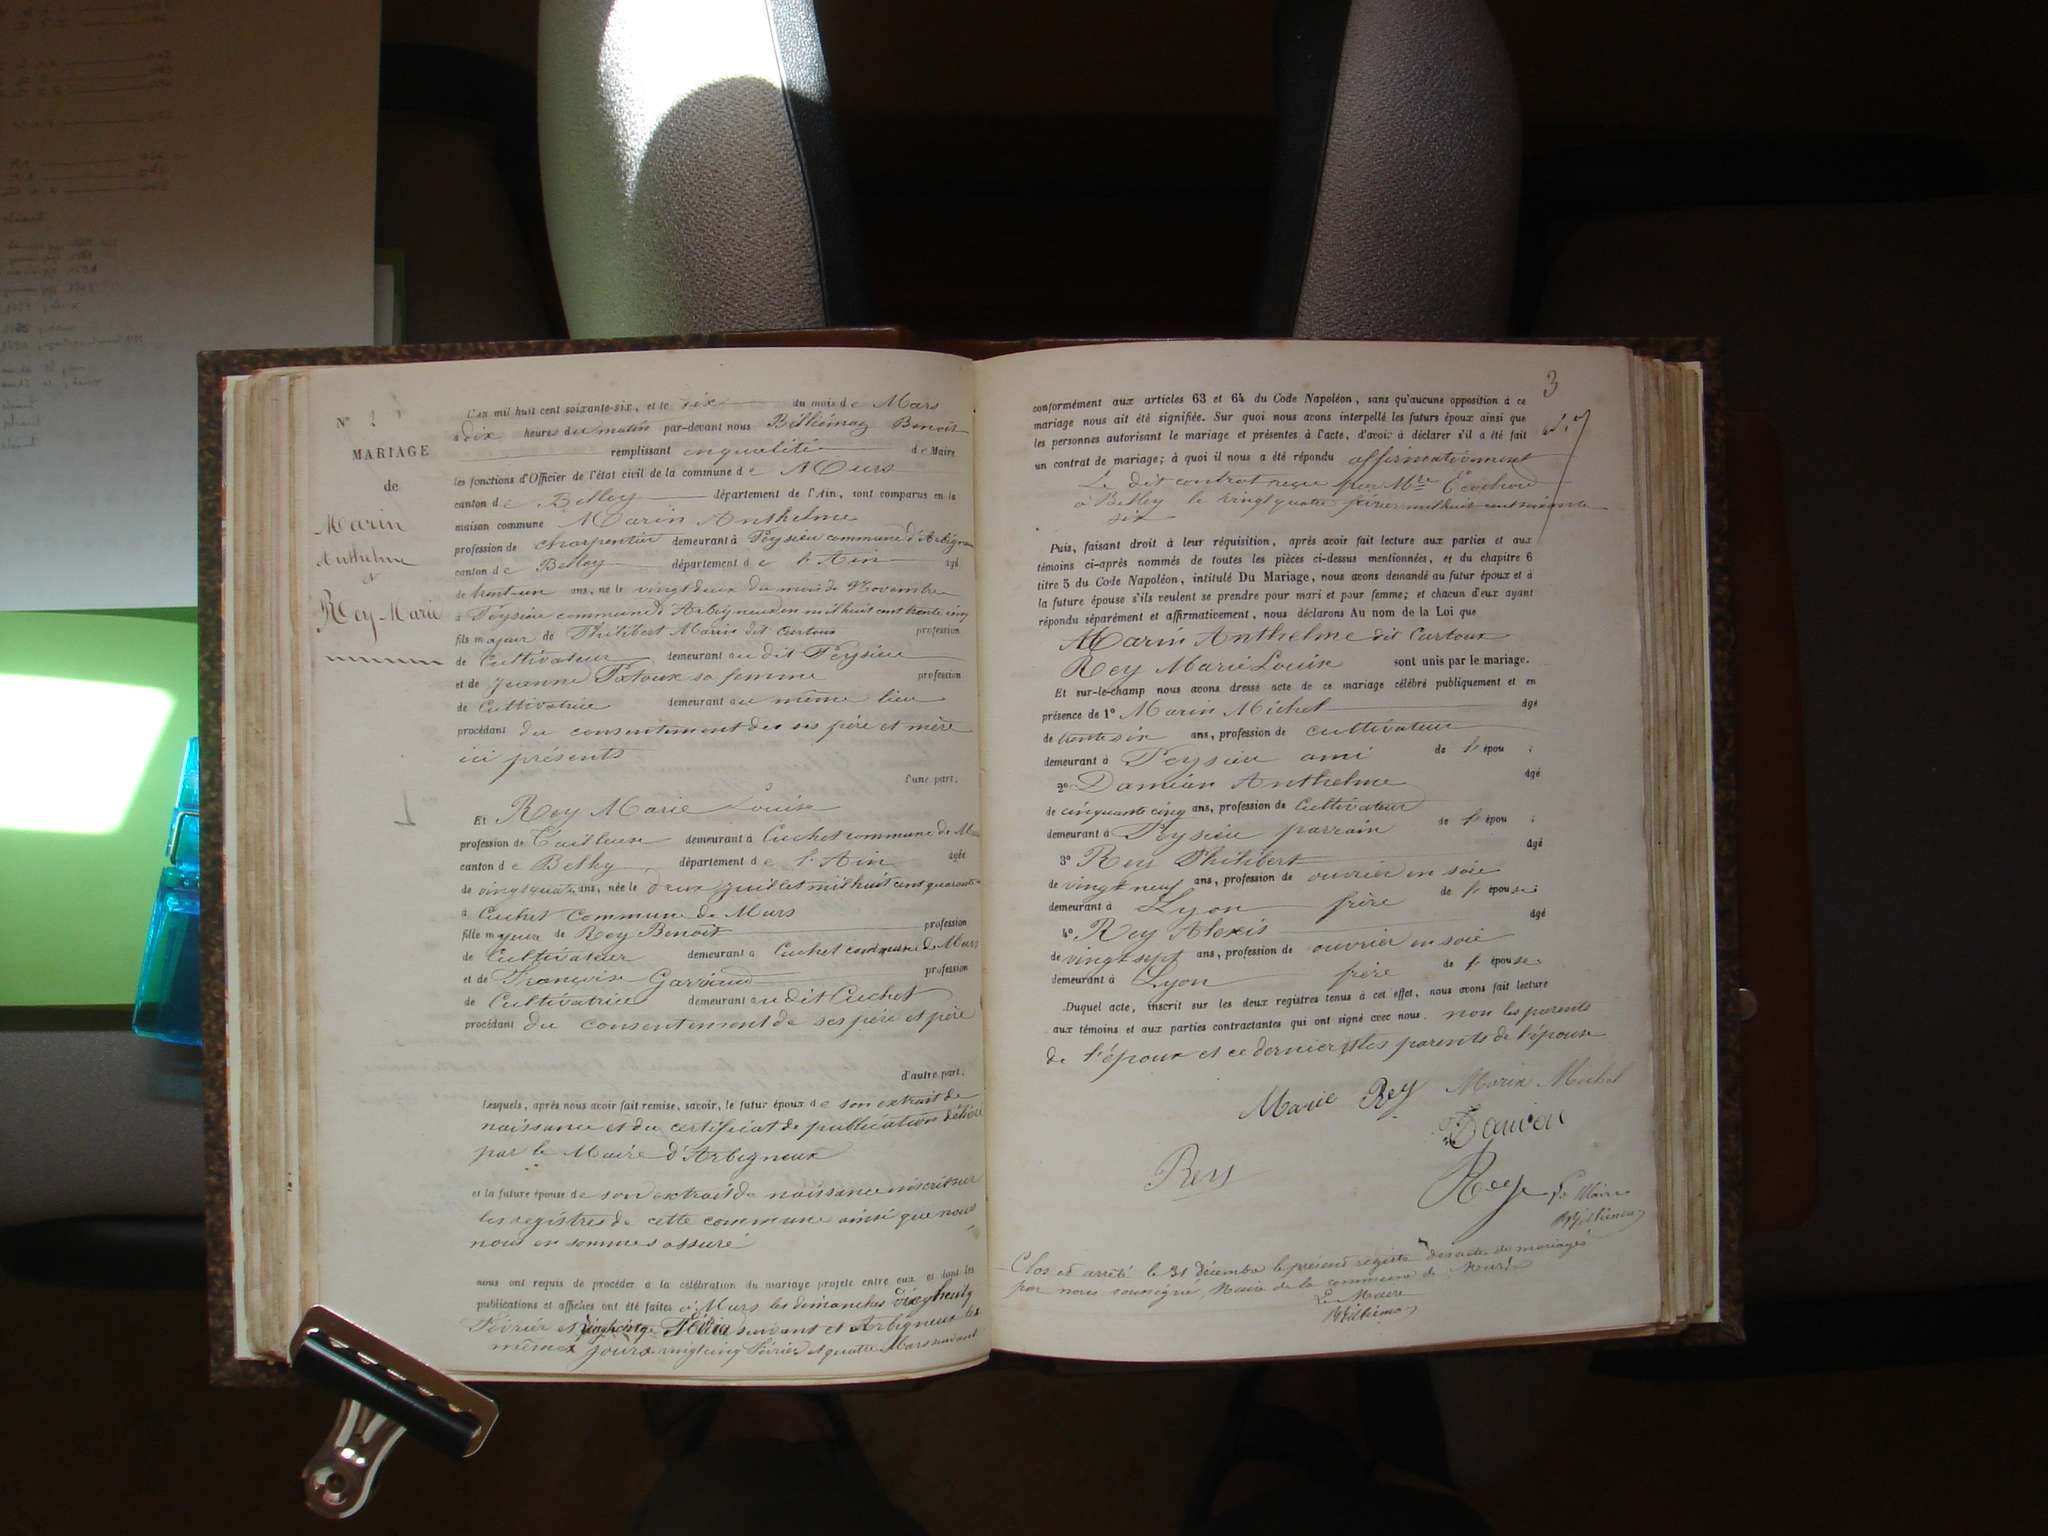 N° 2
MARIAGE
de
Marin
Anthelme
et
Rey Marie
L'an mil huit cent soixante-six, et le six du mois de Mars
à dix heures du matin par-devant nous Billiémaz Benoit
remplissant en qualité de Maire
les fonctions d'Officier de l'état civil de la commune de Murs
canton de Belley département de l'Ain, sont comparus en la
maison commune Marin Anthelme
profession de charpentier demeurant à Peysieu commune d'Arbigneu
canton de Belley département de l'Ain âgé
de trent-un ans, né le vingt deux du mois de Novembre
à Peysieu commune d'Arbigneu en mil huit cent trente cinq
fils majeur de Philibert Marin dit Curtoux profession
de Cultivateur demeurant au dit Peysieu
et de Jeanne sa femme profession
de Cultivatrice demeurant au même lieu
procédant du consentement des ses père et mère
ici présents
d'une part.
Et Rey Marie Louise
profession de Tailleuse demeurant à Cuchet commune de Murs
canton de Belley département de l'Ain âgée
de vingt quatre ans, née le deux juillet mil huit cent quarante
à Cuchet commune de Murs
fille majeure de Rey Benoit profession
de Cultivateur demeurant à Cuchet commune de Murs
et de Françoise profession
de Cultivatrice demeurant au dit Cuchet
procédant du consentement de ses père et père
d'autre part.
Lesquels, après nous avoir fait remise, savoir, le futur époux de son extrait de
naissance et du certificat de publication délivré
par le Maire d'Arbigneux
et la future épouse de son extrait de naissance inscrit sur
les registres de cette commune ainsi que nous
nous en sommes assuré
nous ont requis de procéder à la célébration du mariage projeté entre eux et dont les
publications et affiches ont été faites à Murs les dimanches dix huit
Février et vingt cinq Février suivant et Arbigneux les
mêmes jours vingt cinq Février et quatre Mars suivant
3
conformément aux articles 63 et 64 du Code Napoléon, sans qu'aucune opposition à ce
mariage nous ait été signifiée. Sur quoi nous avons interpellé les futurs époux ainsi que
les personnes autorisant le mariage et présentes à l'acte, d'avoir à déclarer s'il a été fait
un contrat de mariage; à quoi il nous a été répondu affirmativement
Le dit contrat reçu par Mtre Écochard
à Belley le vingt quatre février mil huit cent soixante
six
Puis, faisant droit à leur réquisition, après avoir fait lecture aux parties et aux
témoins ci-après nommés de toutes les pièces ci-dessus mentionnées, et du chapitre 6
titre 5 du Code Napoléon, intitulé Du Mariage, nous avons demandé au futur époux et à
la future épouse s'ils veulent se prendre pour mari et pour femme; et chacun d'eux ayant
répondu séparément et affirmativement, nous déclarons Au nom de la Loi que
Marin Anthelme dit Curtoux
Rey Marie Louise sont unis par le mariage.
Et sur-le-champ nous avons dressé acte de ce mariage célébré publiquement et en
présence de 1° Marin Michel âgé
de trente six ans, profession de cultivateur
demeurant à Peysieu ami de l'épou ;
2° Damian Anthelme âgé
de cinquante cinq ans, profession de Cultivateur
demeurant à Peysieu parrain de l'épou ;
3° Rey Philibert âgé
de vingt neuf ans, profession de ouvrier en soie
demeurant à Lyon frère de l'épouse;
4° Rey Alexis âgé
de vingt sept ans, profession de ouvrier en soie
demeurant à Lyon frère de l'épouse.
Duquel acte, inscrit sur les deux registres tenus à cet effet, nous avons fait lecture
aux témoins et aux parties contractantes qui ont signé avec nous. non les parents
de l'époux et ce dernier et les parents de l'épouse
Marie Rey Marin Michel
Rey
Rey Le Maire
Billiémaz
Clos et arrêté le 31 décembre le présent registre des actes de mariages
par nous soussigné, Maire de la commune de Murs
Le Maire
Billiémaz